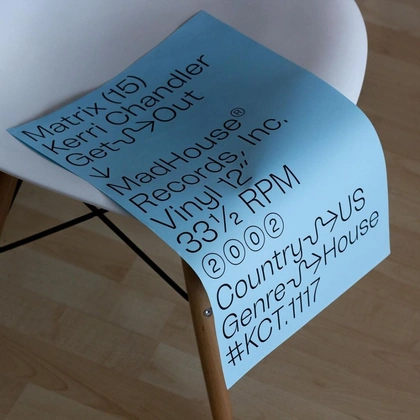 Matrix (15)
Kerri Chandler
Get⤳Out
↓
MadHouse®
Records, Inc.
Vinyl 12”
33½ RPM
②⓪⓪②
Country⤳US
Genre⤳House
#KCT.1117